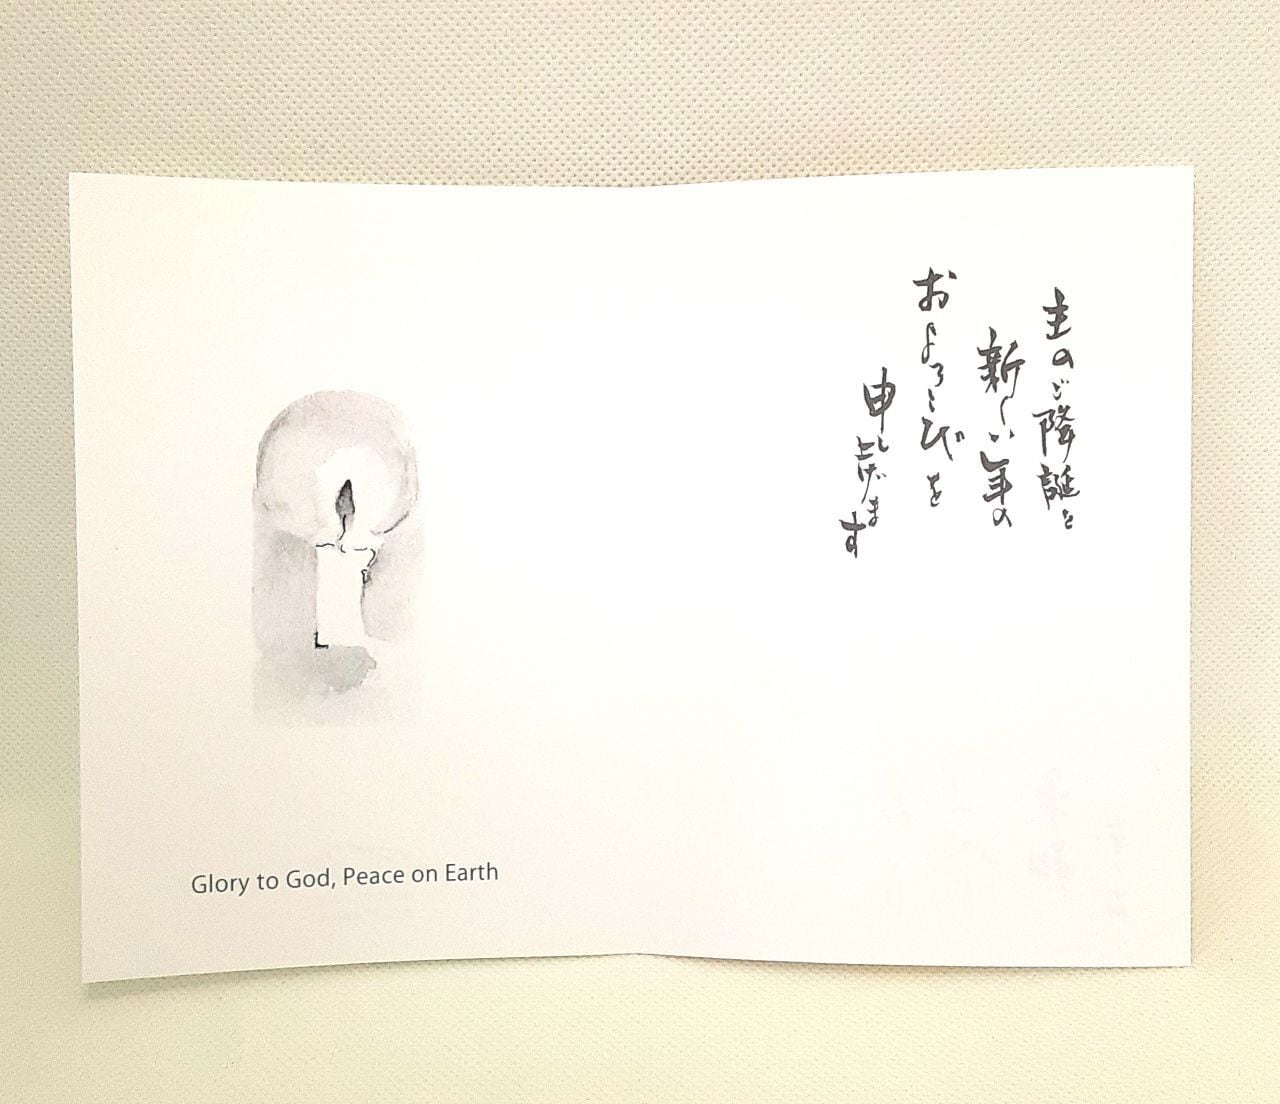 主のご降誕と
新しい年の
およろこびを
申し上げます
Glory to God, Peace on Earth